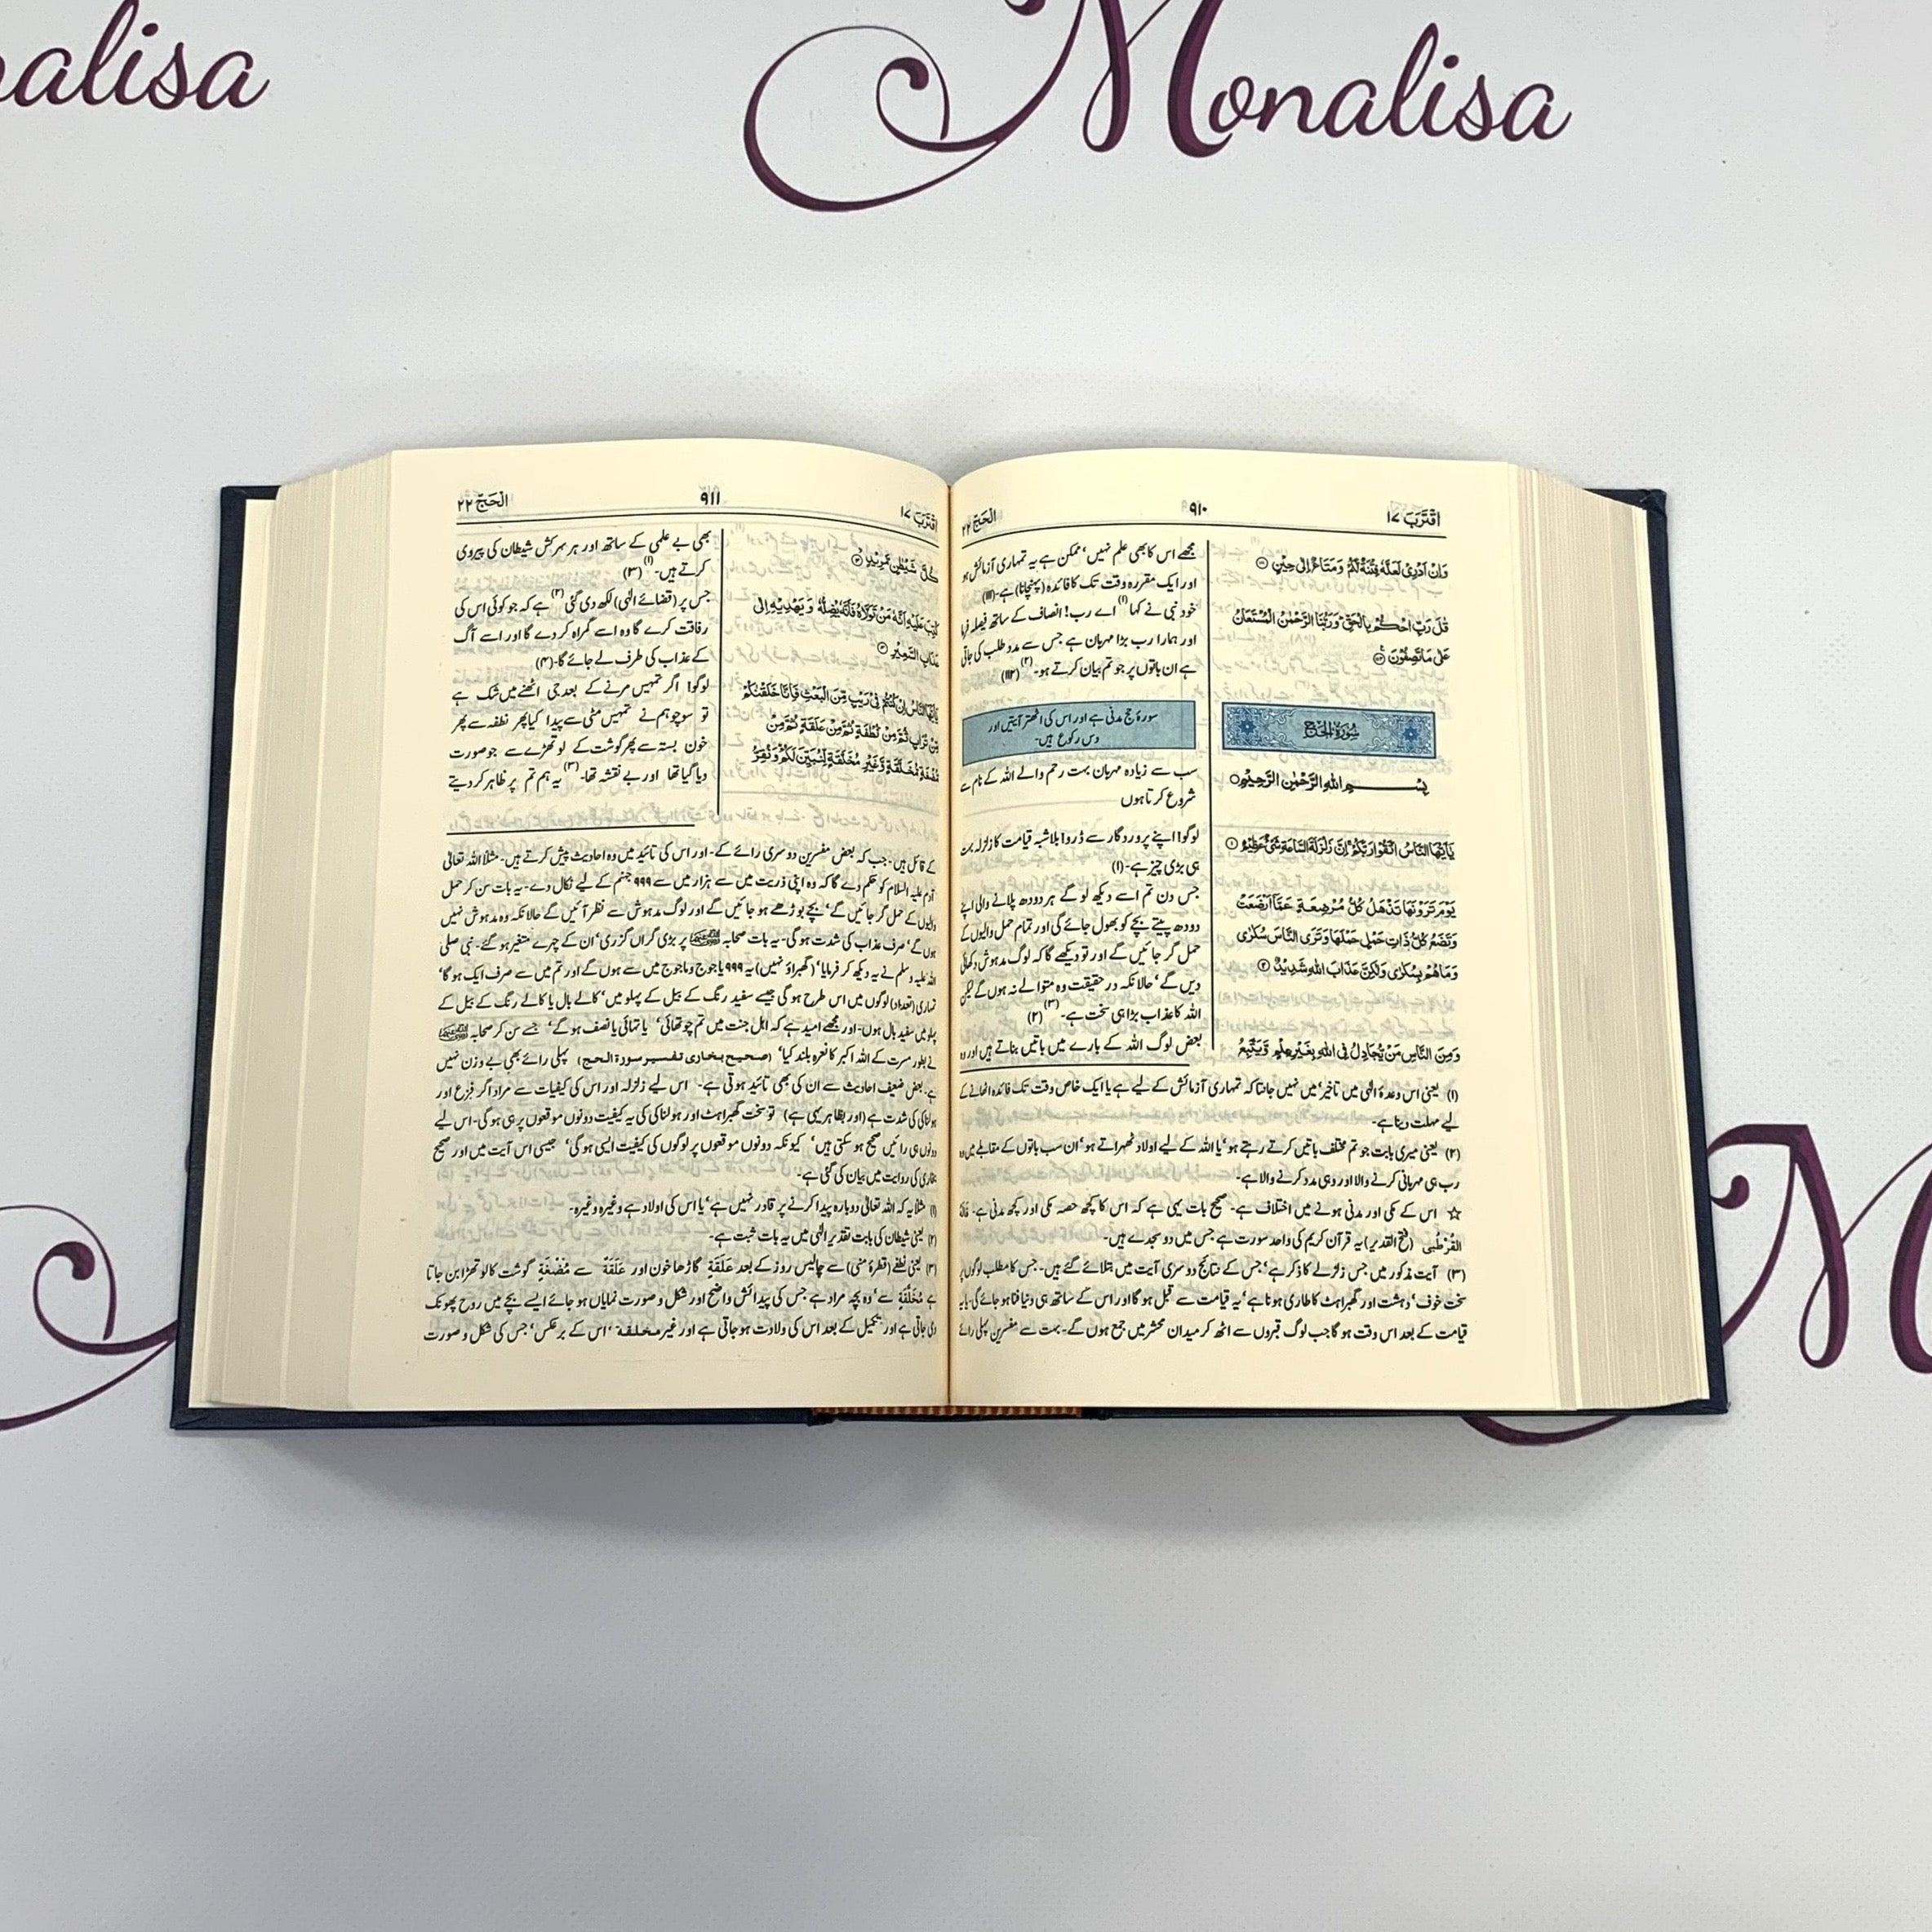 Monalisa
اقْتَرَبَ ١٧
٩١٠
الْحَجّ ٢٢
وَاِنْ اَدْرِىْ لَعَلَّهٗ فِتْنَةٌ لَّكُمْ وَمَتَاعٌ اِلٰى حِيْنٍ
قٰلَ رَبِّ احْكُمْ بِالْحَقِّ ۭ وَرَبُّنَا الرَّحْمٰنُ الْمُسْتَعَانُ
عَلٰى مَا تَصِفُوْنَ
سُوْرَةُ الْحَجِّ
بِسْمِ اللّٰهِ الرَّحْمٰنِ الرَّحِيْمِ
يٰٓاَيُّهَا النَّاسُ اتَّقُوْا رَبَّكُمْ ۚ اِنَّ زَلْزَلَةَ السَّاعَةِ شَىْءٌ عَظِيْمٌ ①
يَوْمَ تَرَوْنَهَا تَذْهَلُ كُلُّ مُرْضِعَةٍ عَمَّآ اَرْضَعَتْ
وَتَضَعُ كُلُّ ذَاتِ حَمْلٍ حَمْلَهَا وَتَرَى النَّاسَ سُكٰرٰى
وَمَا هُمْ بِسُكٰرٰى وَلٰكِنَّ عَذَابَ اللّٰهِ شَدِيْدٌ ②
وَمِنَ النَّاسِ مَنْ يُّجَادِلُ فِى اللّٰهِ بِغَيْرِ عِلْمٍ وَّيَتَّبِعُ
مجھے اس کا بھی علم نہیں، ممکن ہے یہ تمہاری آزمائش ہو
اور ایک مقررہ وقت تک کا فائدہ (پہنچانا) ہے۔ (١١١)
خود نبی نے کہا (١) اے رب! انصاف کے ساتھ فیصلہ فرما
اور ہمارا رب بڑا مہربان ہے جس سے مدد طلب کی جاتی
ہے ان باتوں پر جو تم بیان کرتے ہو۔ (٢) (١١٢)
سورۂ حج مدنی ہے اور اس کی اٹھتر آیتیں اور
دس رکوع ہیں۔
سب سے زیادہ مہربان بہت رحم والے اللہ کے نام سے
شروع کرتا ہوں
لوگو! اپنے پروردگار سے ڈرو! بلاشبہ قیامت کا زلزلہ بہت
ہی بڑی چیز ہے۔ (١)
جس دن تم اسے دیکھ لو گے ہر دودھ پلانے والی اپنے
دودھ پیتے بچے کو بھول جائے گی اور تمام حمل والیوں کے
حمل گر جائیں گے اور تو دیکھے گا کہ لوگ مدہوش دکھائی
دیں گے، حالانکہ درحقیقت وہ متوالے نہ ہوں گے لیکن
اللہ کا عذاب بڑا ہی سخت ہے۔ (٣) (٢)
بعض لوگ اللہ کے بارے میں باتیں بناتے ہیں اور وہ
(١) یعنی اس وعدۂ الٰہی میں تاخیر، میں نہیں جانتا کہ تمہاری آزمائش کے لیے ہے یا ایک خاص وقت تک فائدہ اٹھانے کے
لیے مہلت دینا ہے۔
(٢) یعنی میری بابت جو تم مختلف باتیں کرتے رہتے ہو، یا اللہ کے لیے اولاد ٹھہراتے ہو، ان سب باتوں کے مقابلے میں وہ
رب ہی مہربانی کرنے والا اور وہی مدد کرنے والا ہے۔
☆ اس کے مکی اور مدنی ہونے میں اختلاف ہے۔ صحیح بات یہی ہے کہ اس کا کچھ حصہ مکی اور کچھ مدنی ہے۔ قَالَهُ
القُرْطُبِی (فتح القدیر) یہ قرآن کریم کی واحد سورت ہے جس میں دو سجدے ہیں۔
(٣) آیت مذکور میں جس زلزلے کا ذکر ہے، جس کے نتائج دوسری آیت میں بتلائے گئے ہیں۔ جس کا مطلب لوگوں پر
سخت خوف، دہشت اور گھبراہٹ کا طاری ہونا ہے، یہ قیامت سے قبل ہو گا اور اس کے ساتھ ہی دنیا فنا ہو جائے گی۔ یا یہ
قیامت کے بعد اس وقت ہو گا جب لوگ قبروں سے اٹھ کر میدان محشر میں جمع ہوں گے۔ بہت سے مفسرین پہلی رائے
اقْتَرَبَ ١٧
٩١١
الْحَجّ ٢٢
كُلَّ شَيْطٰنٍ مَّرِيْدٍ ③
كُتِبَ عَلَيْهِ اَنَّهٗ مَنْ تَوَلَّاهُ فَاَنَّهٗ يُضِلُّهٗ وَيَهْدِيْهِ اِلٰى
عَذَابِ السَّعِيْرِ ④
يٰٓاَيُّهَا النَّاسُ اِنْ كُنْتُمْ فِىْ رَيْبٍ مِّنَ الْبَعْثِ فَاِنَّا خَلَقْنٰكُمْ
مِّنْ تُرَابٍ ثُمَّ مِنْ نُّطْفَةٍ ثُمَّ مِنْ عَلَقَةٍ ثُمَّ مِنْ
مُّضْغَةٍ مُّخَلَّقَةٍ وَّغَيْرِ مُخَلَّقَةٍ لِّنُبَيِّنَ لَكُمْ ۭ وَنُقِرُّ
بھی بے علمی کے ساتھ اور ہر سرکش شیطان کی پیروی
کرتے ہیں۔ (١) (٣)
جس پر (قضائے الٰہی) لکھ دی گئی (٢) ہے کہ جو کوئی اس کی
رفاقت کرے گا وہ اسے گمراہ کر دے گا اور اسے آگ
کے عذاب کی طرف لے جائے گا۔ (٤)
لوگو! اگر تمہیں مرنے کے بعد جی اٹھنے میں شک ہے
تو سوچو ہم نے تمہیں مٹی سے پیدا کیا پھر نطفہ سے پھر
خون بستہ سے پھر گوشت کے لوتھڑے سے جو صورت
دیا گیا تھا اور بے نقشہ تھا۔ (٣) یہ ہم تم پر ظاہر کر دیتے
کے قائل ہیں۔ جب کہ بعض مفسرین دوسری رائے کے۔ اور اس کی تائید میں وہ احادیث پیش کرتے ہیں۔ مثلاً اللہ تعالیٰ
آدم علیہ السلام کو حکم دے گا کہ وہ اپنی ذریت میں سے ہزار میں سے ٩٩٩ جہنم کے لیے نکال دے۔ یہ بات سن کر حمل
والیوں کے حمل گر جائیں گے، بچے بوڑھے ہو جائیں گے اور لوگ مدہوش سے نظر آئیں گے حالانکہ وہ مدہوش نہیں
ہوں گے، صرف عذاب کی شدت ہو گی۔ یہ بات صحابہ پر بڑی گراں گزری، ان کے چہرے متغیر ہو گئے۔ نبی صلی
اللہ علیہ وسلم نے یہ دیکھ کر فرمایا، (گھبراؤ نہیں) یہ ٩٩٩ یاجوج وماجوج میں سے ہوں گے اور تم میں سے صرف ایک ہو گا،
تمہاری (تعداد) لوگوں میں اس طرح ہو گی جیسے سفید رنگ کے بیل کے پہلو میں، کالے بال یا کالے رنگ کے بیل کے
پہلو میں سفید بال ہوں۔ اور مجھے امید ہے کہ اہل جنت میں تم چوتھائی، یا تہائی یا نصف ہو گے، جسے سن کر صحابہ
نے بطور مسرت کے اللہ اکبر کا نعرہ بلند کیا، (صحیح بخاری تفسیر سورۃ الحج) پہلی رائے بھی بے وزن نہیں
ہے۔ بعض ضعیف احادیث سے ان کی بھی تائید ہوتی ہے۔ اس لیے زلزلہ اور اس کی کیفیات سے مراد اگر فزع اور
ہولناکی کی شدت ہے (اور بظاہر یہی ہے) تو سخت گھبراہٹ اور ہولناکی کی یہ کیفیت دونوں موقعوں پر ہی ہو گی۔ اس لیے
دونوں ہی رائیں صحیح ہو سکتی ہیں، کیونکہ دونوں موقعوں پر لوگوں کی کیفیت ایسی ہو گی، جیسی اس آیت میں اور صحیح
بخاری کی روایت میں بیان کی گئی ہے۔
(١) مثلاً یہ کہ اللہ تعالیٰ دوبارہ پیدا کرنے پر قادر نہیں ہے، یا اس کی اولاد ہے وغیرہ وغیرہ۔
(٢) یعنی شیطان کی بابت تقدیر الٰہی میں یہ بات ثبت ہے۔
(٣) یعنی نطفے (قطرۂ منی) سے چالیس روز کے بعد عَلَقَةٍ گاڑھا خون اور عَلَقَةٌ سے مُضْغَةٍ گوشت کا لوتھڑا بن جاتا
ہے مُخَلَّقَةٍ سے، وہ بچہ مراد ہے جس کی پیدائش واضح اور شکل و صورت نمایاں ہو جائے ایسے بچے میں روح پھونک
دی جاتی ہے اور تکمیل کے بعد اس کی ولادت ہو جاتی ہے اور غیر مخلقة، اس کے برعکس، جس کی شکل و صورت